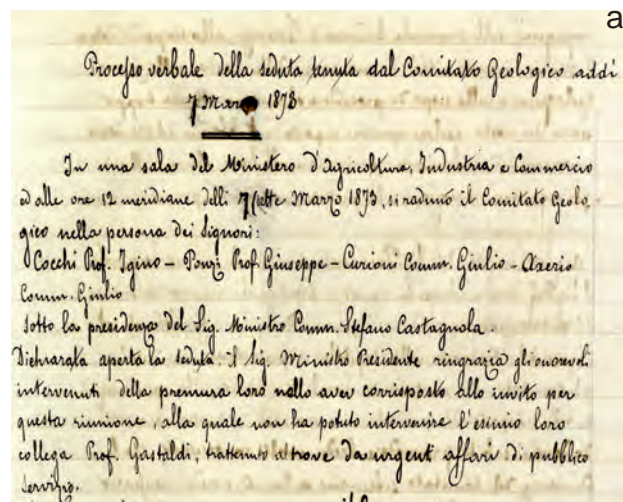 a
Processo verbale della seduta tenuta dal Comitato Geologico addì
7 Marzo 1873
In una sala del Ministero d'Agricoltura, Industria e Commercio
ed alle ore 12 meridiane delli 7 sette Marzo 1873, si radunò il Comitato Geolo,
gico nella persona dei Signori:
Cocchi Prof. Igino – Ponzi Prof. Giuseppe – Curioni Comm. Giulio – Axerio
Comm. Giulio
Sotto la presidenza del Sig. Ministro Comm. Stefano Castagnola.
Dichiarata aperta la seduta. il Sig. Ministro Presidente ringrazia gli onorevoli
intervenuti della premura loro nello aver corrisposto allo invito per
questa riunione, alla quale non ha potuto intervenire l'esimio loro
collega Prof. Gastaldi, trattenuto altrove da urgenti affari di pubblico
servizio.